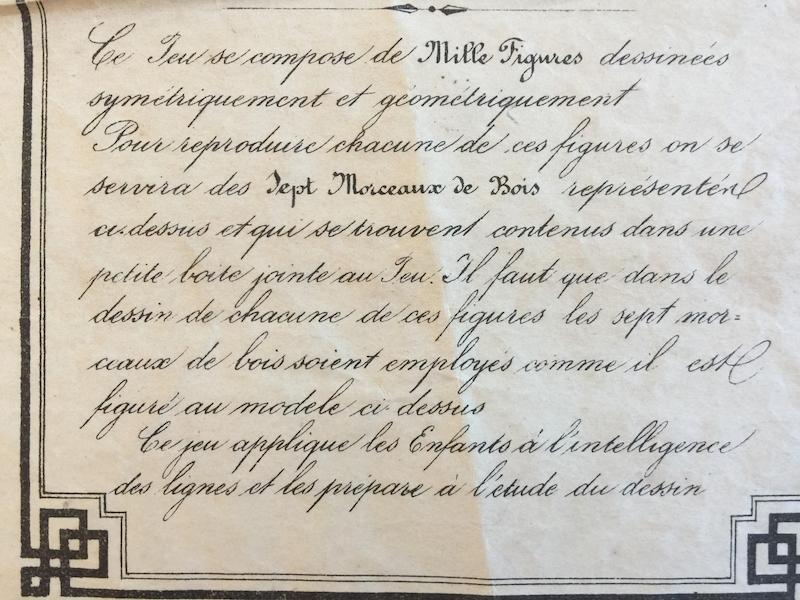 Ce Jeu se compose de Mille Figures dessinées
symétriquement et géométriquement
Pour reproduire chacune de ces figures on se
servira des Sept Morceaux de Bois représentés
ci-dessus et qui se trouvent contenus dans une
petite boite jointe au Jeu. Il faut que dans le
dessin de chacune de ces figures les sept mor=
ceaux de bois soient employés comme il est
figuré au modele ci-dessus
Ce jeu applique les Enfants à l'intelligence
des lignes et les prépare à l'étude du dessin